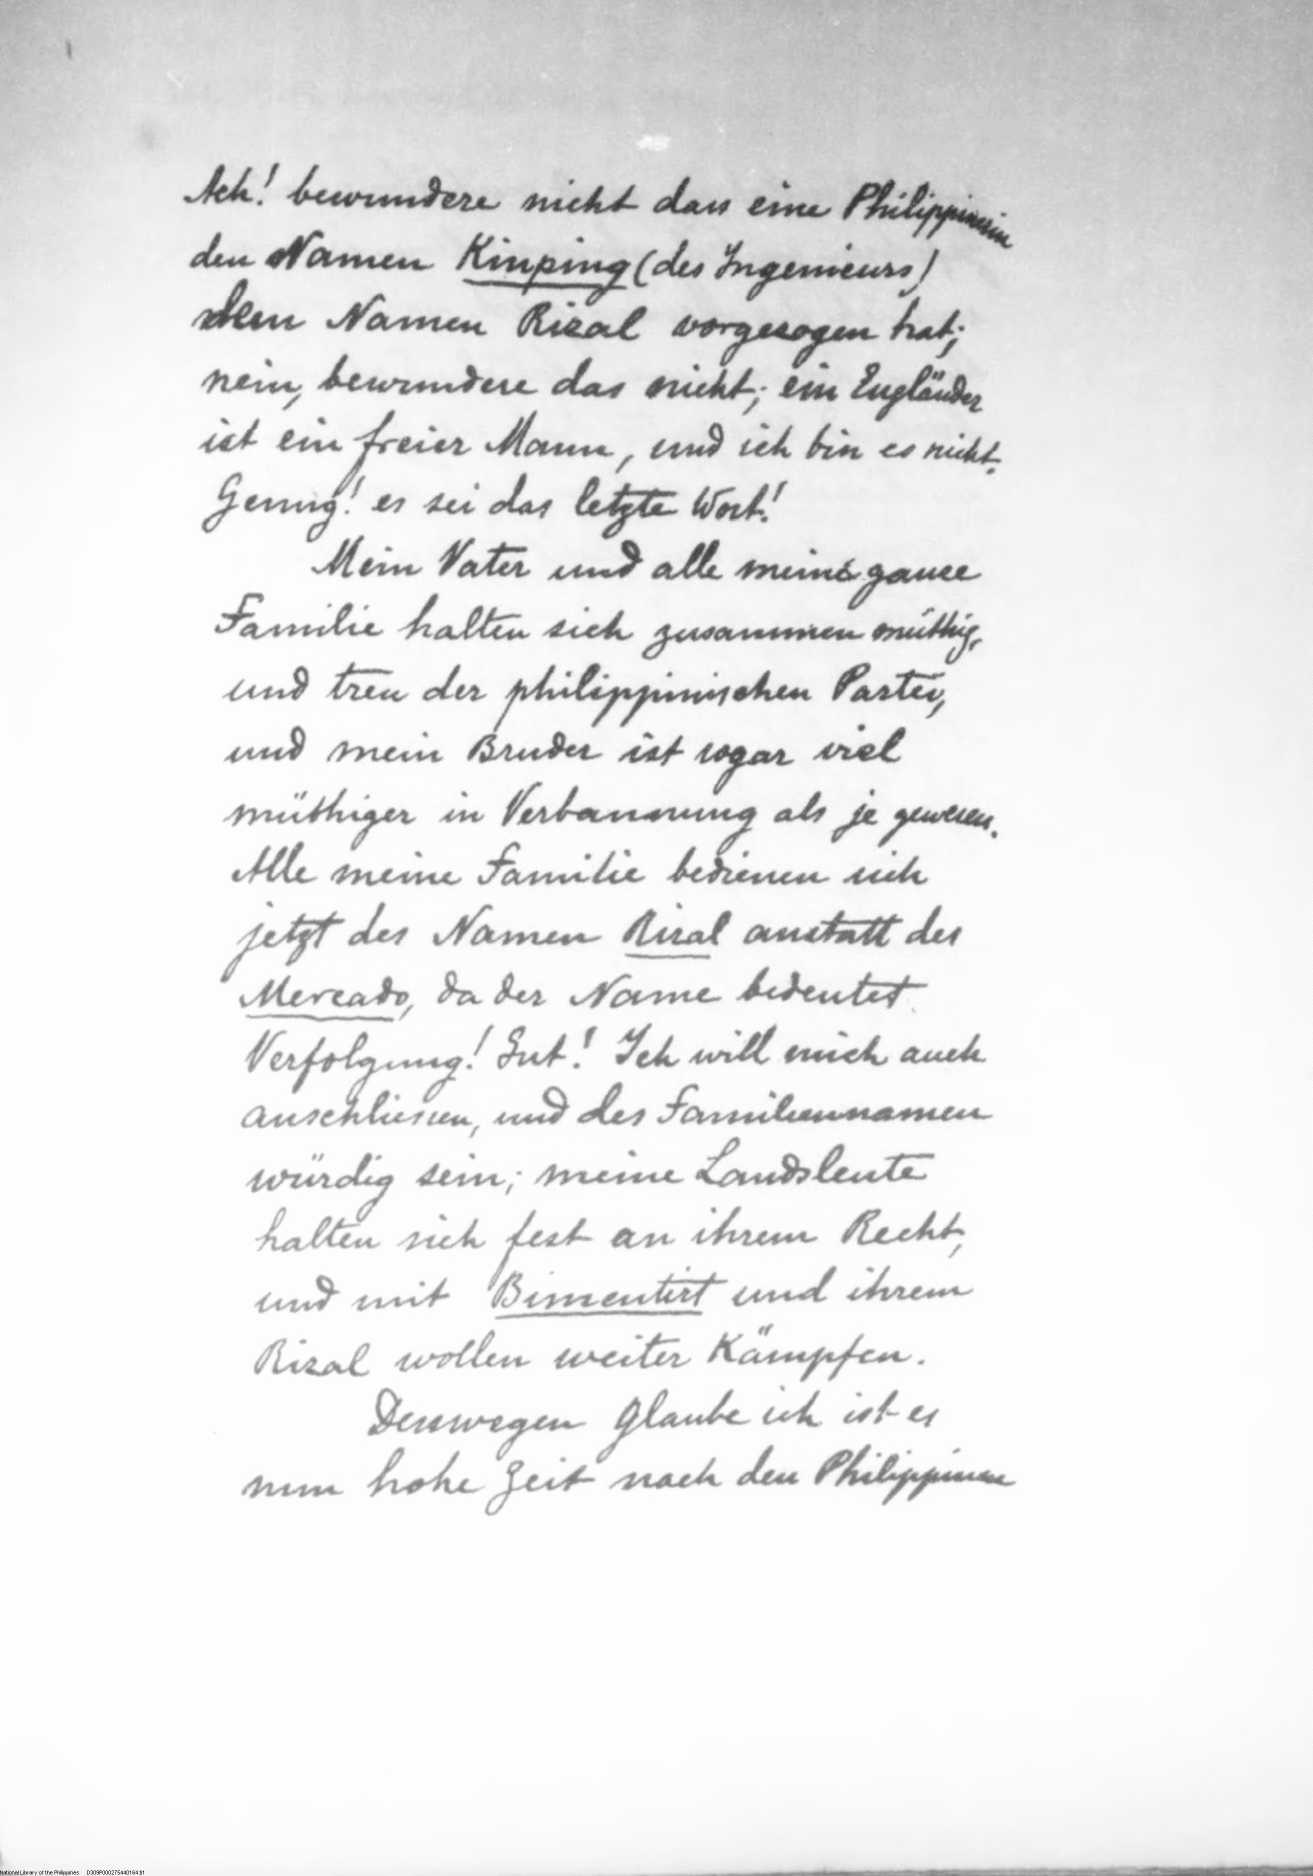 Ach! bewundere nicht dass eine Philippinerin
den Namen Kinping (des Ingenieurs)
dem Namen Rizal vorgezogen hat;
nein, bewundere das nicht; ein Engländer
ist ein freier Mann, und ich bin es nicht.
Genug! es sei das letzte Wort!
Mein Vater und alle meine ganze
Familie halten sich zusammen müthig,
und treu der philippinischen Partei,
und mein Bruder ist sogar viel
müthiger in Verbannung als je gewesen.
Alle meine Familie bedienen sich
jetzt des Namen Rizal anstatt des
Mercado, da der Name bedeutet
Verfolgung! Gut! Ich will mich auch
anschliessen, und des Familiennamen
würdig sein; meine Landsleute
halten sich fest an ihrem Recht,
und mit Bimentirt und ihrem
Rizal wollen weiter Kämpfen.
Desswegen glaube ich ist es
nun hohe Zeit nach den Philippinen
National Library of the Philippines D309P000275440164.tif